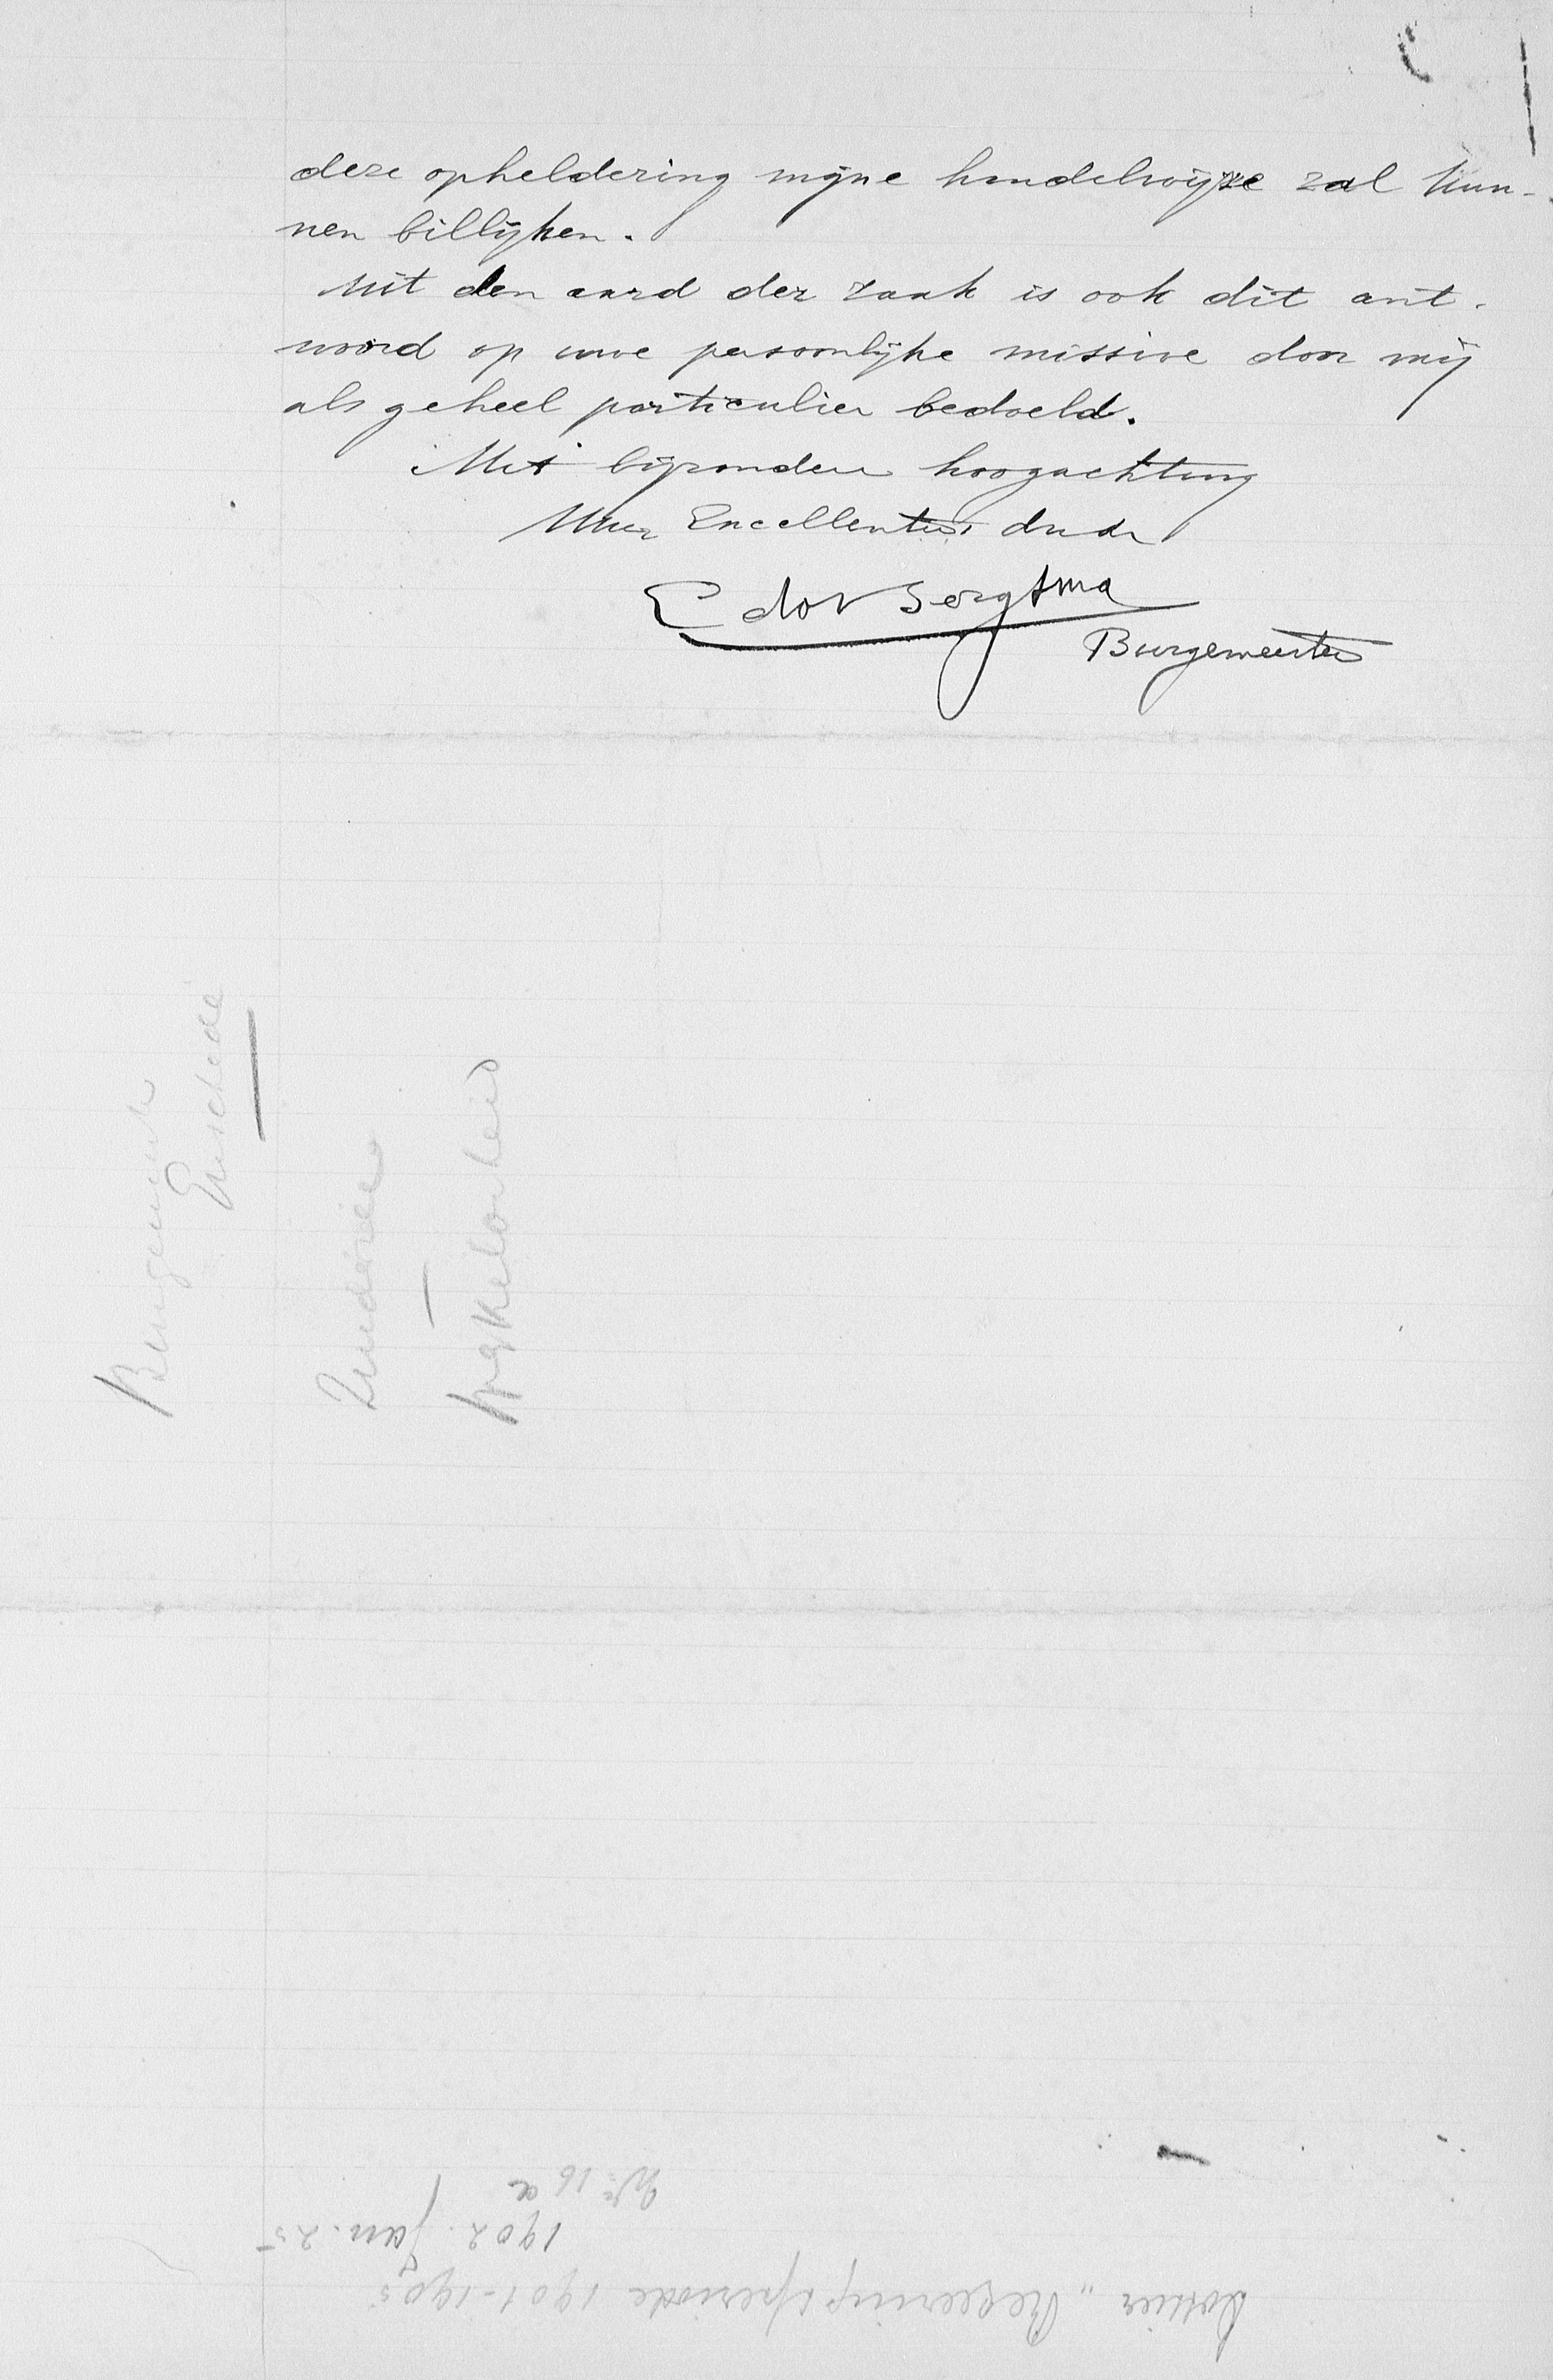 deze opheldering mijne handelwijze zal kun-
nen billijken.
Uit den aard der zaak is ook dit ant-
woord op uwe persoonlijke missive door mij
als geheel particulier bedoeld.
Met bijzondere hoogachting
Uwer Excellenties dw dr
Edo Bergsma
Burgemeester
Burgemeester
Enschedé
Dossier „Regeeringsperiode 1901-1905
1902. Jan. 25
No 16 a